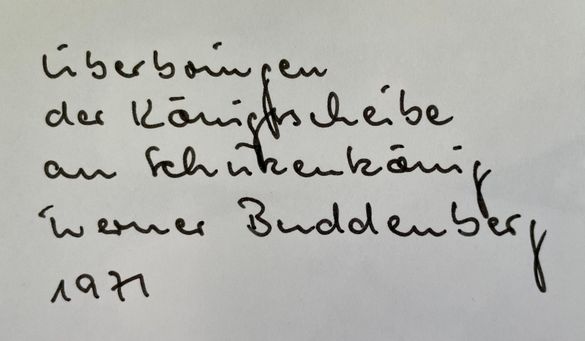 Überbringen
der Königsscheibe
an Schützenkönig
Werner Buddenberg
1971